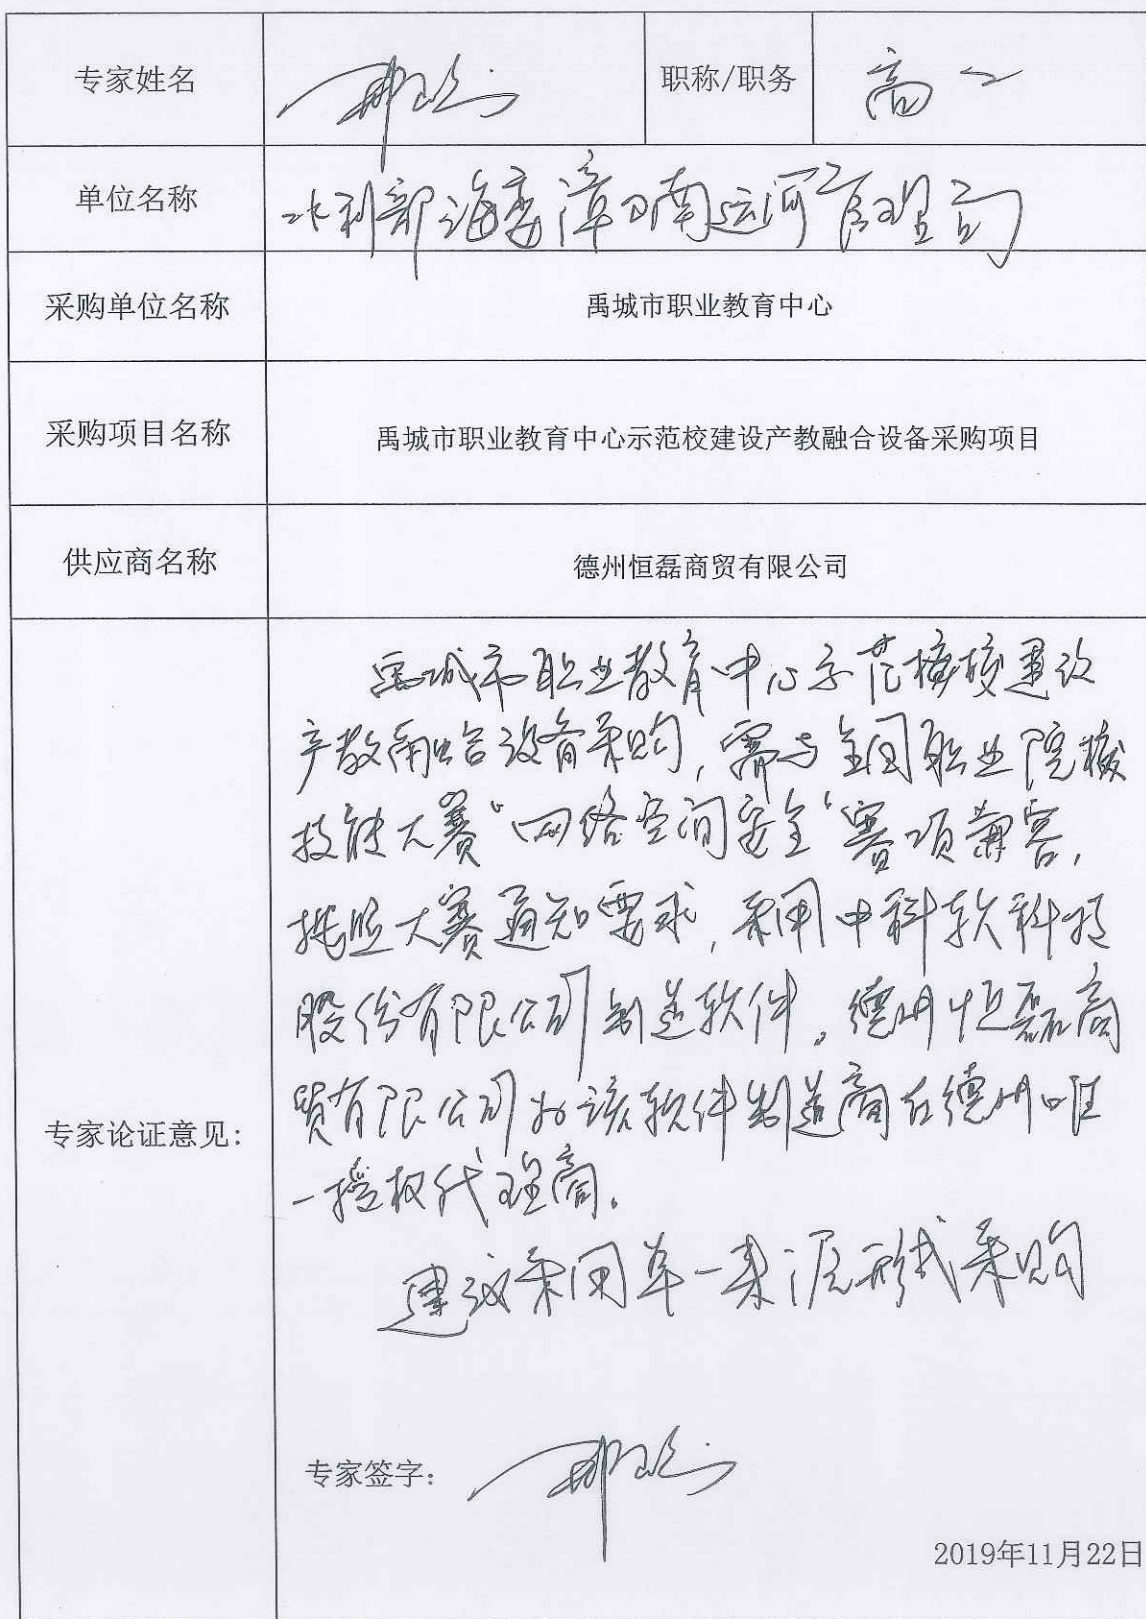 专家姓名 职称/职务 高工
单位名称 水利部海委漳卫南运河管理局
采购单位名称 禹城市职业教育中心
采购项目名称 禹城市职业教育中心示范校建设产教融合设备采购项目
供应商名称 德州恒磊商贸有限公司
专家论证意见:
禹城市职业教育中心示范校建设
产教融合设备采购,需与全国职业院校
技能大赛“网络空间安全”赛项兼容,
按照大赛通知要求,采用中科软科技
股份有限公司制造软件。德州恒磊商
贸有限公司为该软件制造商在德州唯
一授权代理商。
建议采用单一来源形式采购
专家签字:
2019年11月22日